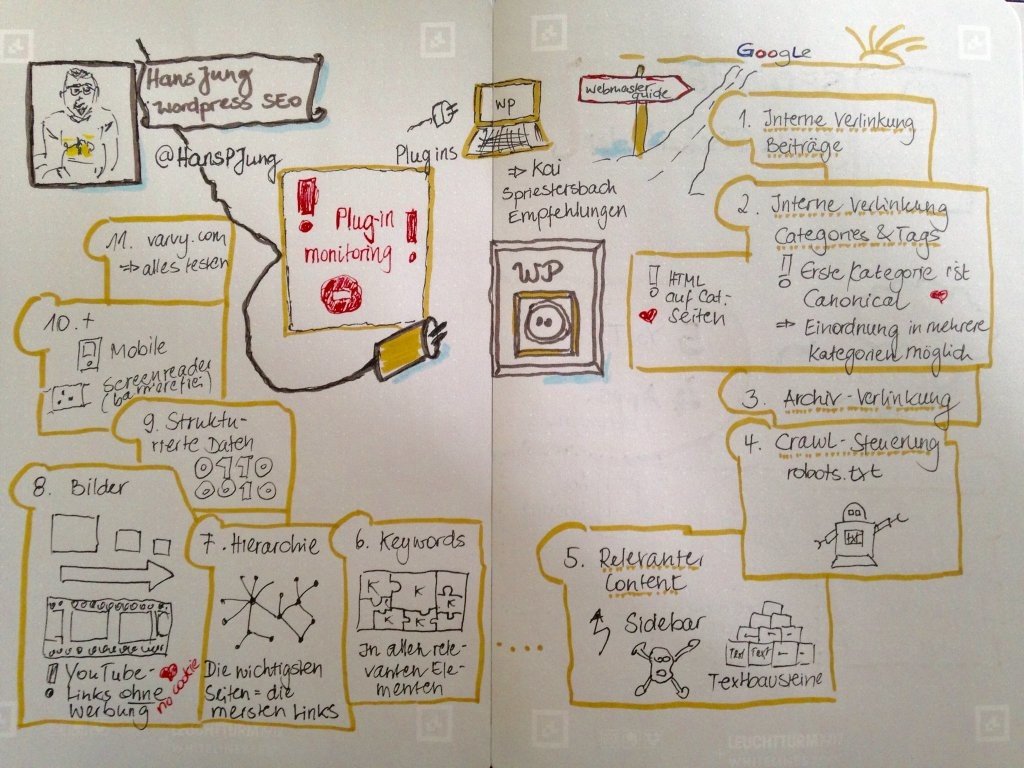 Hans Jung
Wordpress SEO
@HansPJung
Plug-in
monitoring
Plugins
WP
⇒ Kai
Spriestersbach
Empfehlungen
WP
Google
webmaster
guide
1. Interne Verlinkung
Beiträge
2. Interne Verlinkung
Categories & Tags
! Erste Kategorie ist
Canonical
⇒ Einordnung in mehrere
Kategorien möglich
! HTML
auf Cat.-
Seiten
3. Archiv-Verlinkung
4. Crawl-Steuerung
robots.txt
txt
5. Relevanter
Content
Sidebar
Text Text
Textbausteine
6. Keywords
K K K K K K
In allen rele-
vanten Ele-
menten
7. Hierarchie
Die wichtigsten
Seiten = die
meisten Links
8. Bilder
! YouTube-
Links ohne
Werbung
no cookie
9. Struktu-
rierte Daten
10. +
Mobile
Screenreader
11. varvy.com
⇒ alles testen
LEUCHTTURM